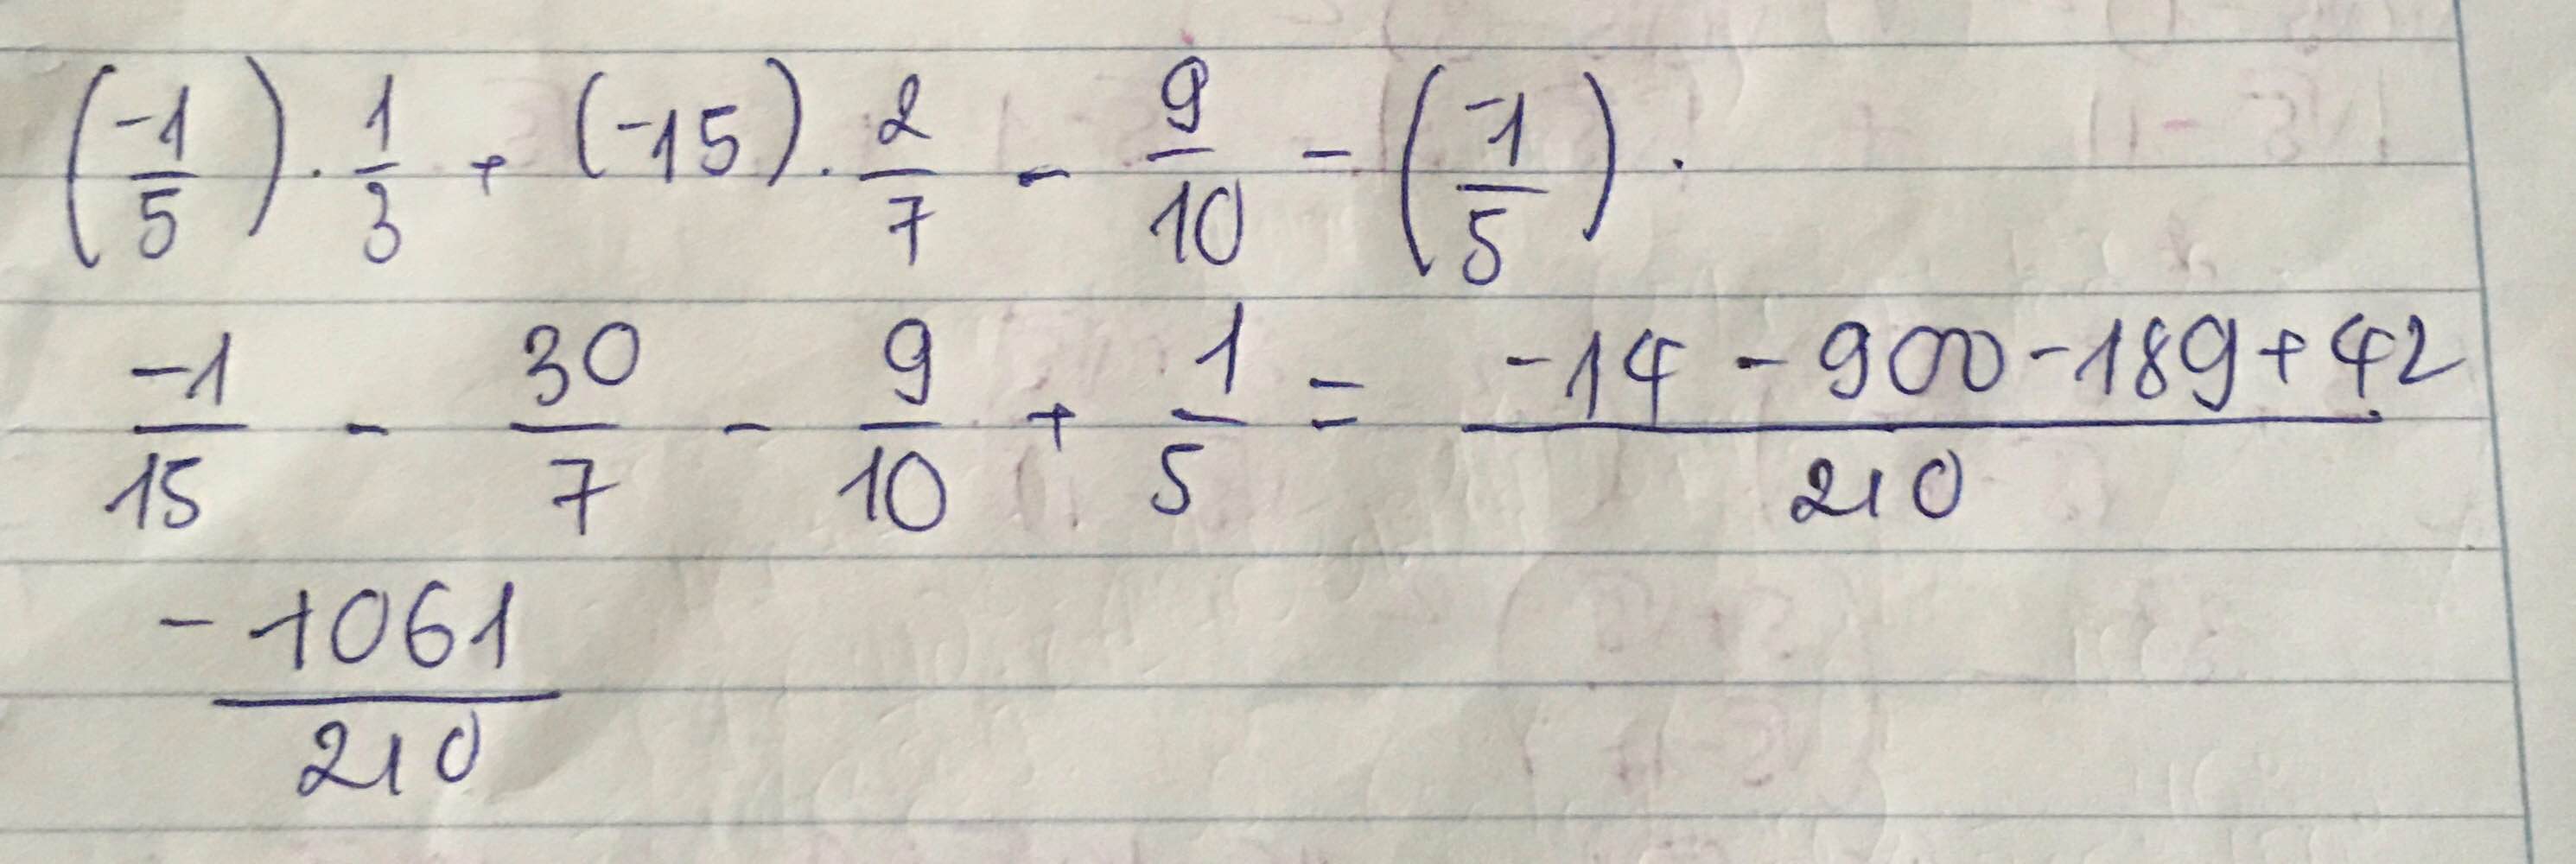 (-1/5) · 1/3 + (-15) · 2/7 - 9/10 - (-1/5) ·
-1/15 - 30/7 - 9/10 + 1/5 = (-14 - 900 - 189 + 42)/210
-1061/210